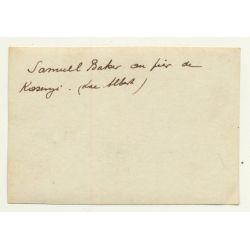 Samuel Baker au pier de
Kasenyi. (Lac Albert)